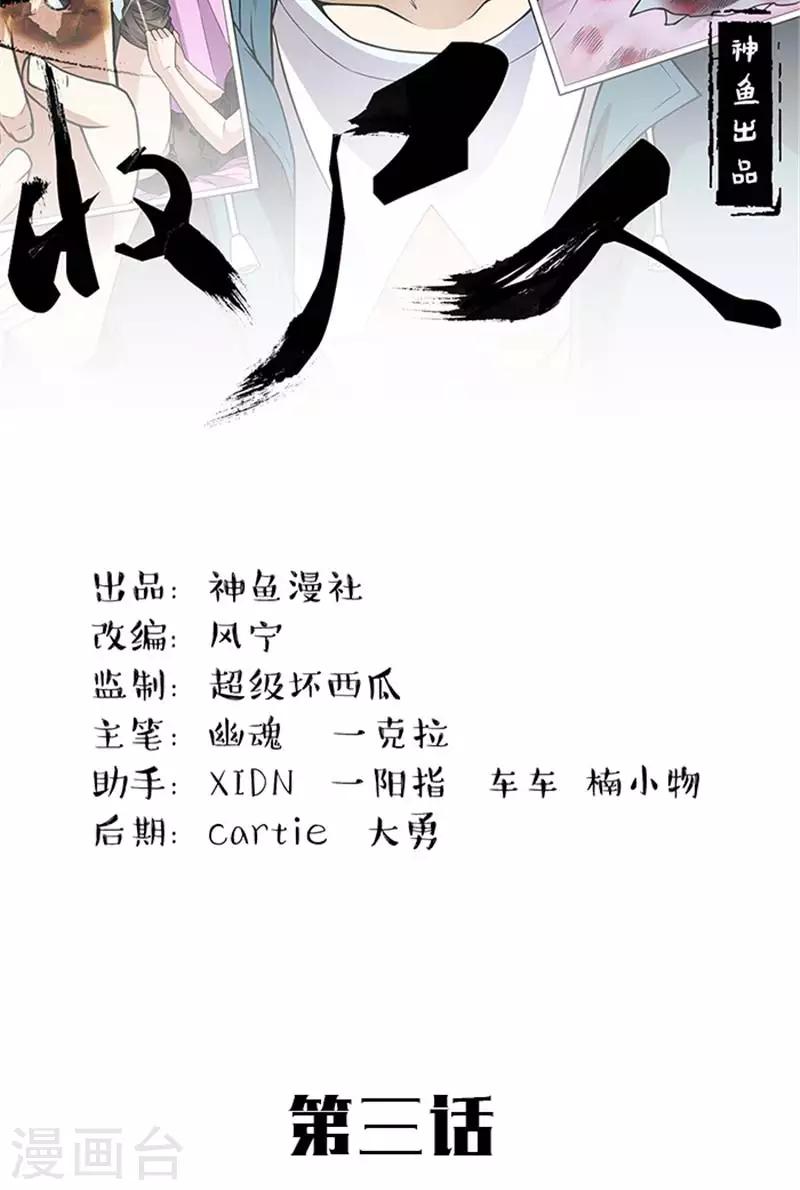 神鱼出品
收尸人
出品: 神鱼漫社
改编: 风宁
监制: 超级坏西瓜
主笔: 幽魂 一克拉
助手: XIDN 一阳指 车车 楠小物
后期: cartie 大勇
第三话
漫画台